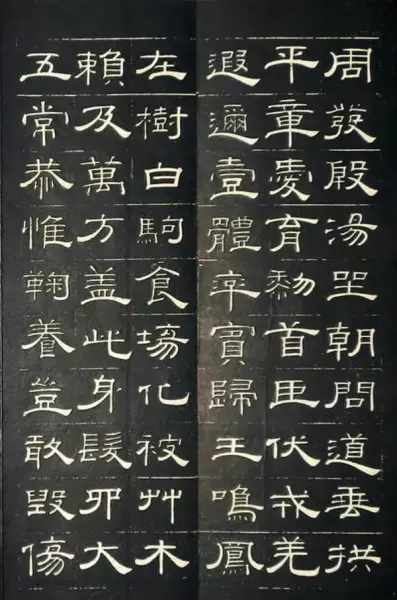 周發殷湯坐朝問道垂拱
平章愛育黎首臣伏戎羌
遐邇壹體率賓歸王鳴鳳
在樹白駒食場化被艸木
賴及萬方盖此身髮四大
五常恭惟鞠養豈敢毀傷